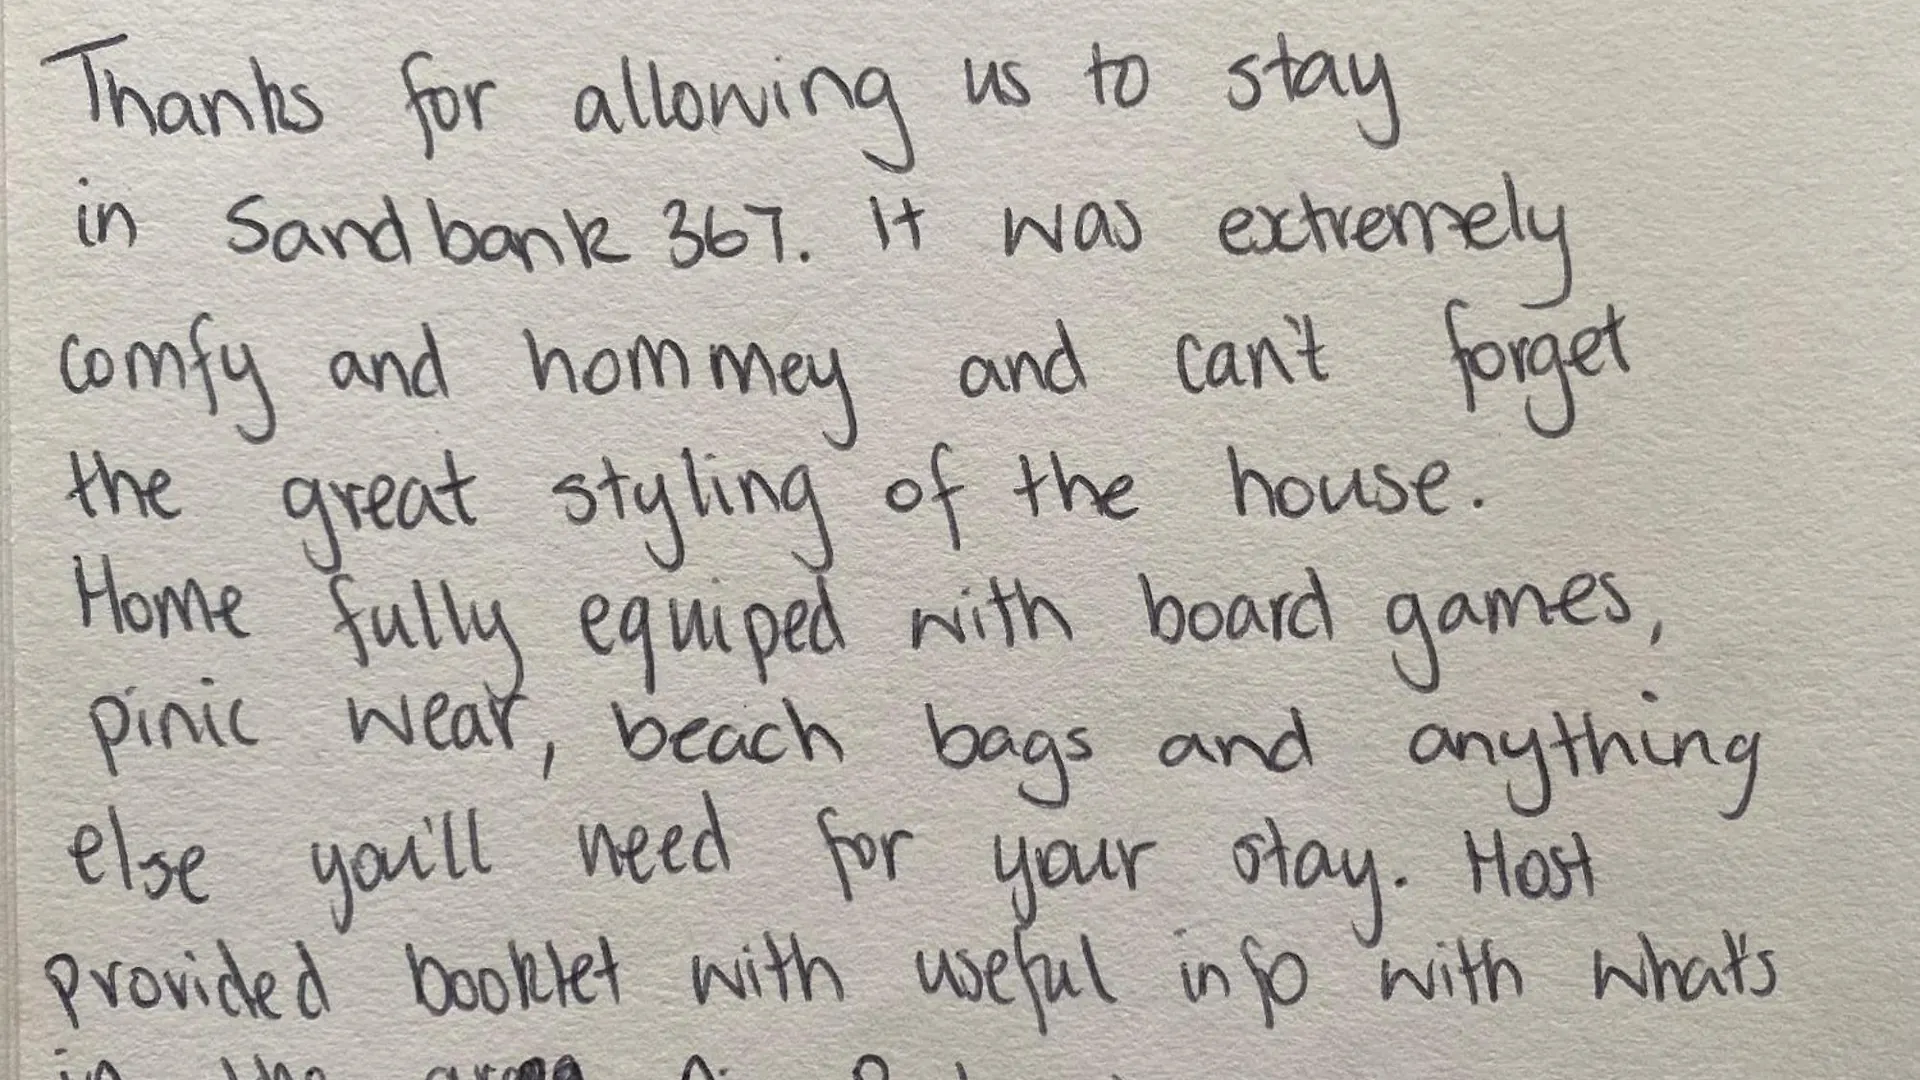 Thanks for allowing us to stay
in Sandbank 367. It was extremely
comfy and hommey and can't forget
the great styling of the house.
Home fully equiped with board games,
pinic wear, beach bags and anything
else you'll need for your stay. Host
provided booklet with useful info with what's
in the